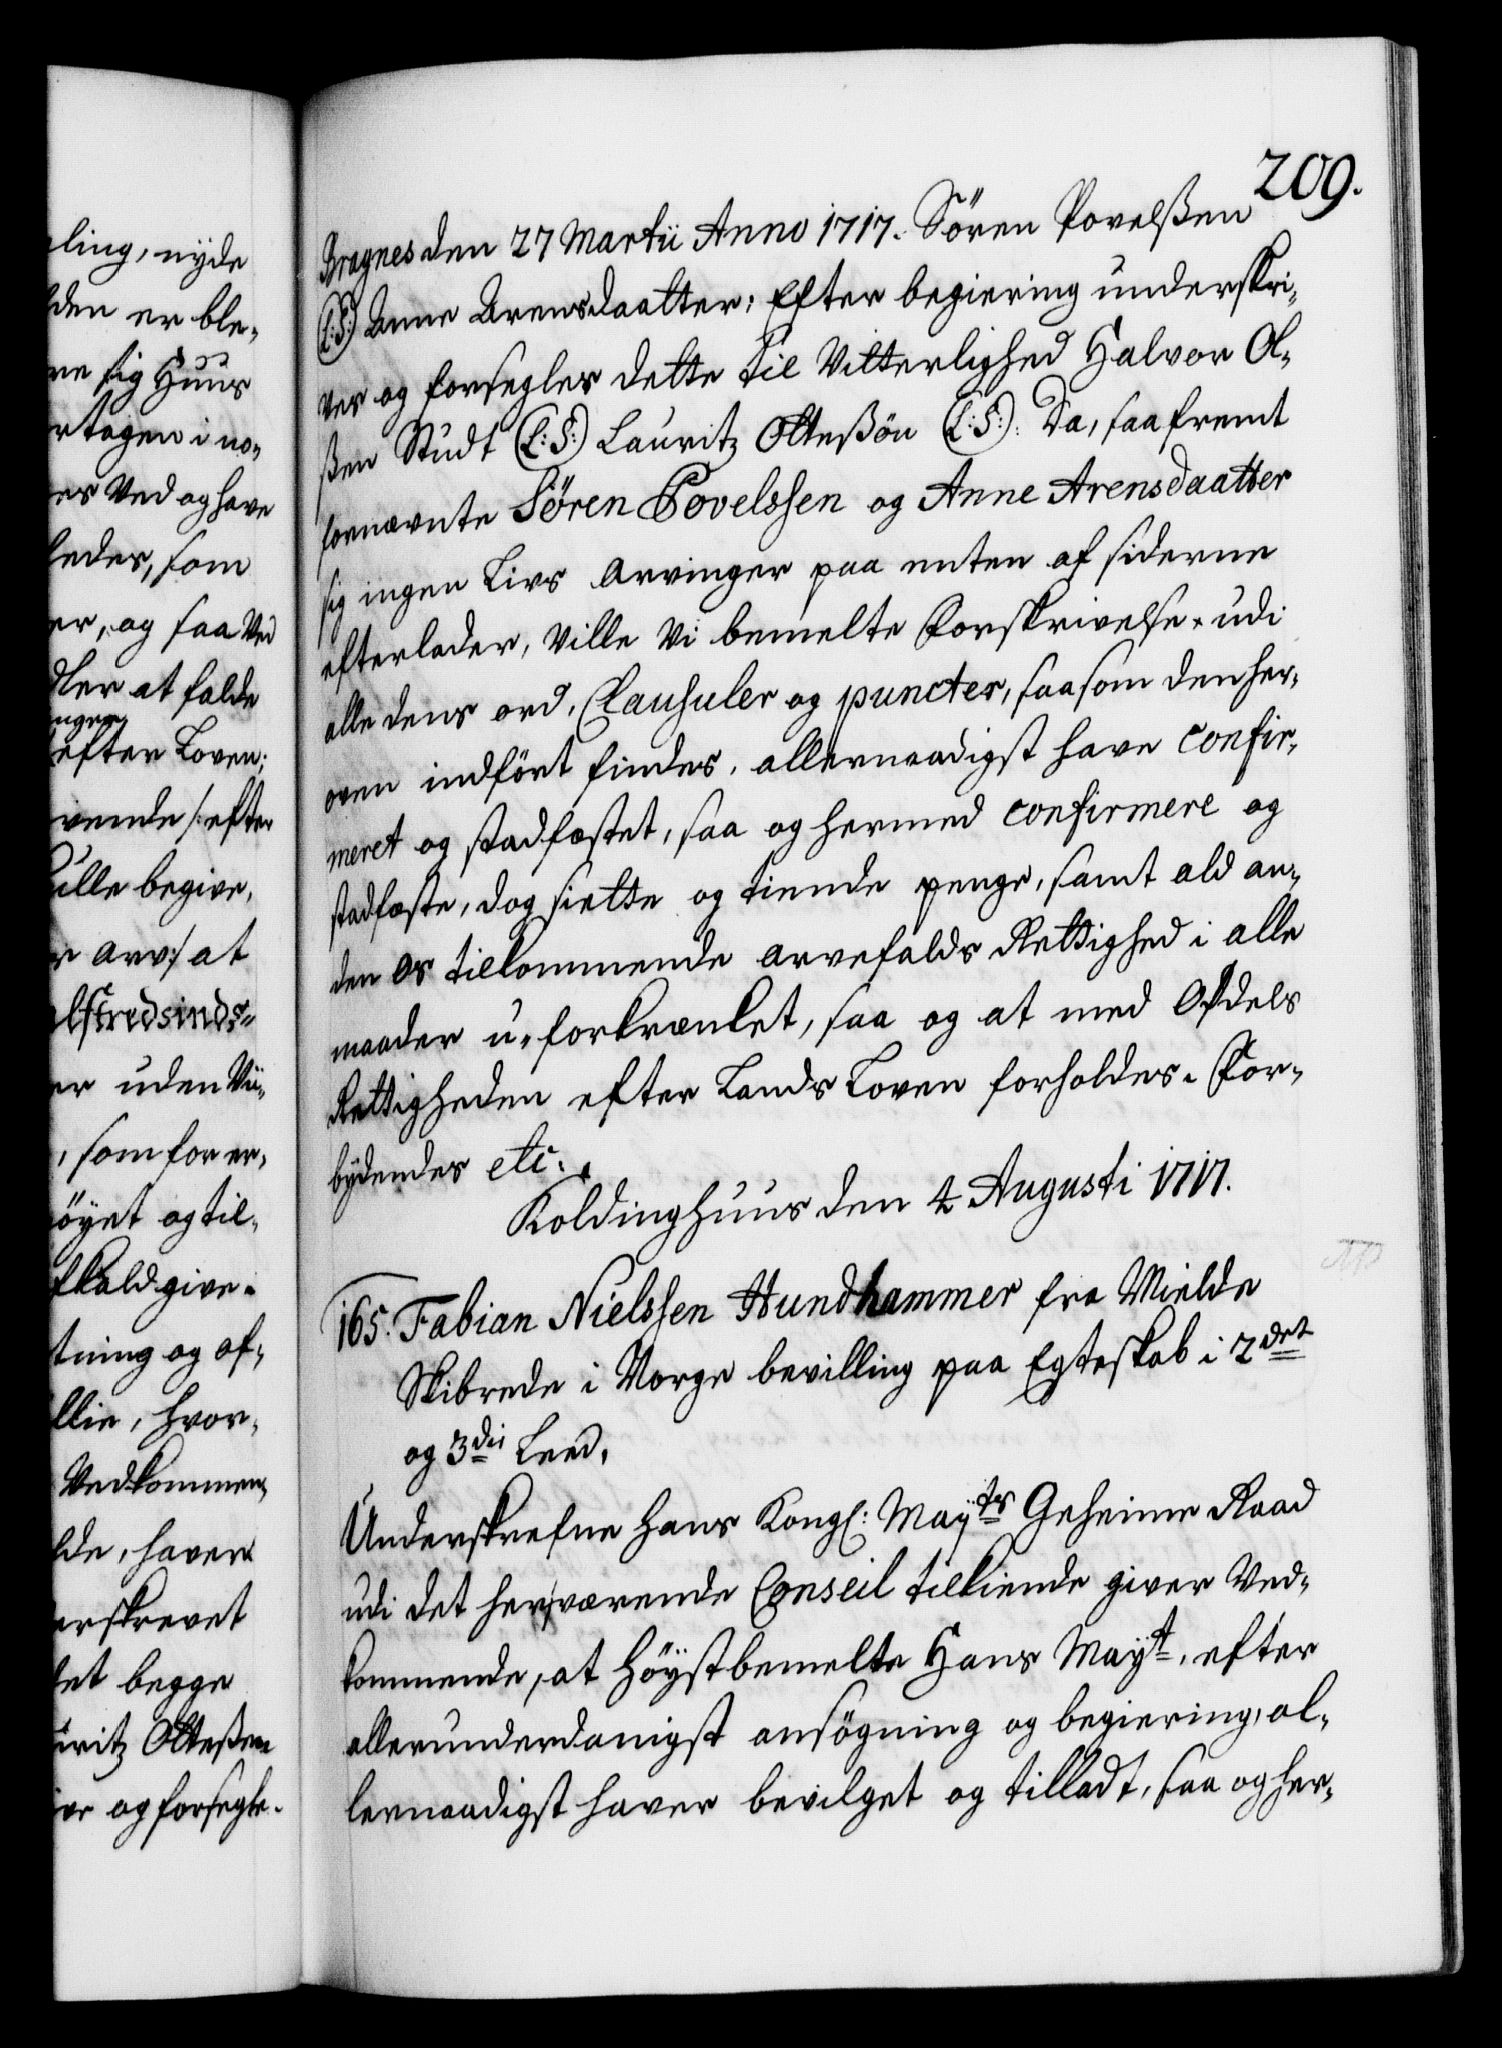 ling, nyde
den er ble,
re sig Huus
rtagen i no,
es Ved og have
leder, som
er, og saa Ved
dler at falde
nger
efter Loven;
vende /: efter
ulle begive,
r arv:/ at
lstredsinds,,
er uden Vii,
, som for er,
öyet og til,
fkald give,
tning og af,
llie, hvor,
Vedkommen,
lde, haver
erskrevet
et begge
uritz Olteßen
er og forsegle.
209.
Bragnes den 27 Martii Anno 1717. Sören Povelßen
(L:S:) Anne Arensdaatter: Efter begiering underskri,
ver og forsegler dette til Vitterlighed Halvor Ol,
ßen Studt (L:S:) Lauritz Olteßön (L:S:). Da, saafremt
fornævnte Sören Povelssen og Anne Arensdaatter
sig ingen Livs Arvinger paa enten af siderne
efterlader, Ville Vi bemelte Forskrivelse udi
alle dens ord, Clausuler og puncter, saasom den her,
oven indfört findes, allernaadigst have confir,
meret og stadfæstet, saa og hermed confirmere og
stadfæste, dog siette og tiende penge, samt ald an,
den Os tilkommende arvefalds Rettighed i alle
maader u,forkrænket, saa og at med Odels
Rettigheden efter Lands Loven forholdes. For,
bydendes etc.
Koldinghuus den 4 Augusti 1717.
165. Fabian Nielssen Hundhammer fra Mielde
Skibrede i Norge bevilling paa Egteskab i 2det
og 3die Leed.
Underskrefne Hans Kongl: Mayts Geheime Raad
udi det herværende Conseil tilkiende giver Ved,
kommende, at Höystbemelte Hans Mayt, efter
allerunderdanigst ansögning og begiering, al,
lernaadigst haver bevilget og tilladt, saa og her,